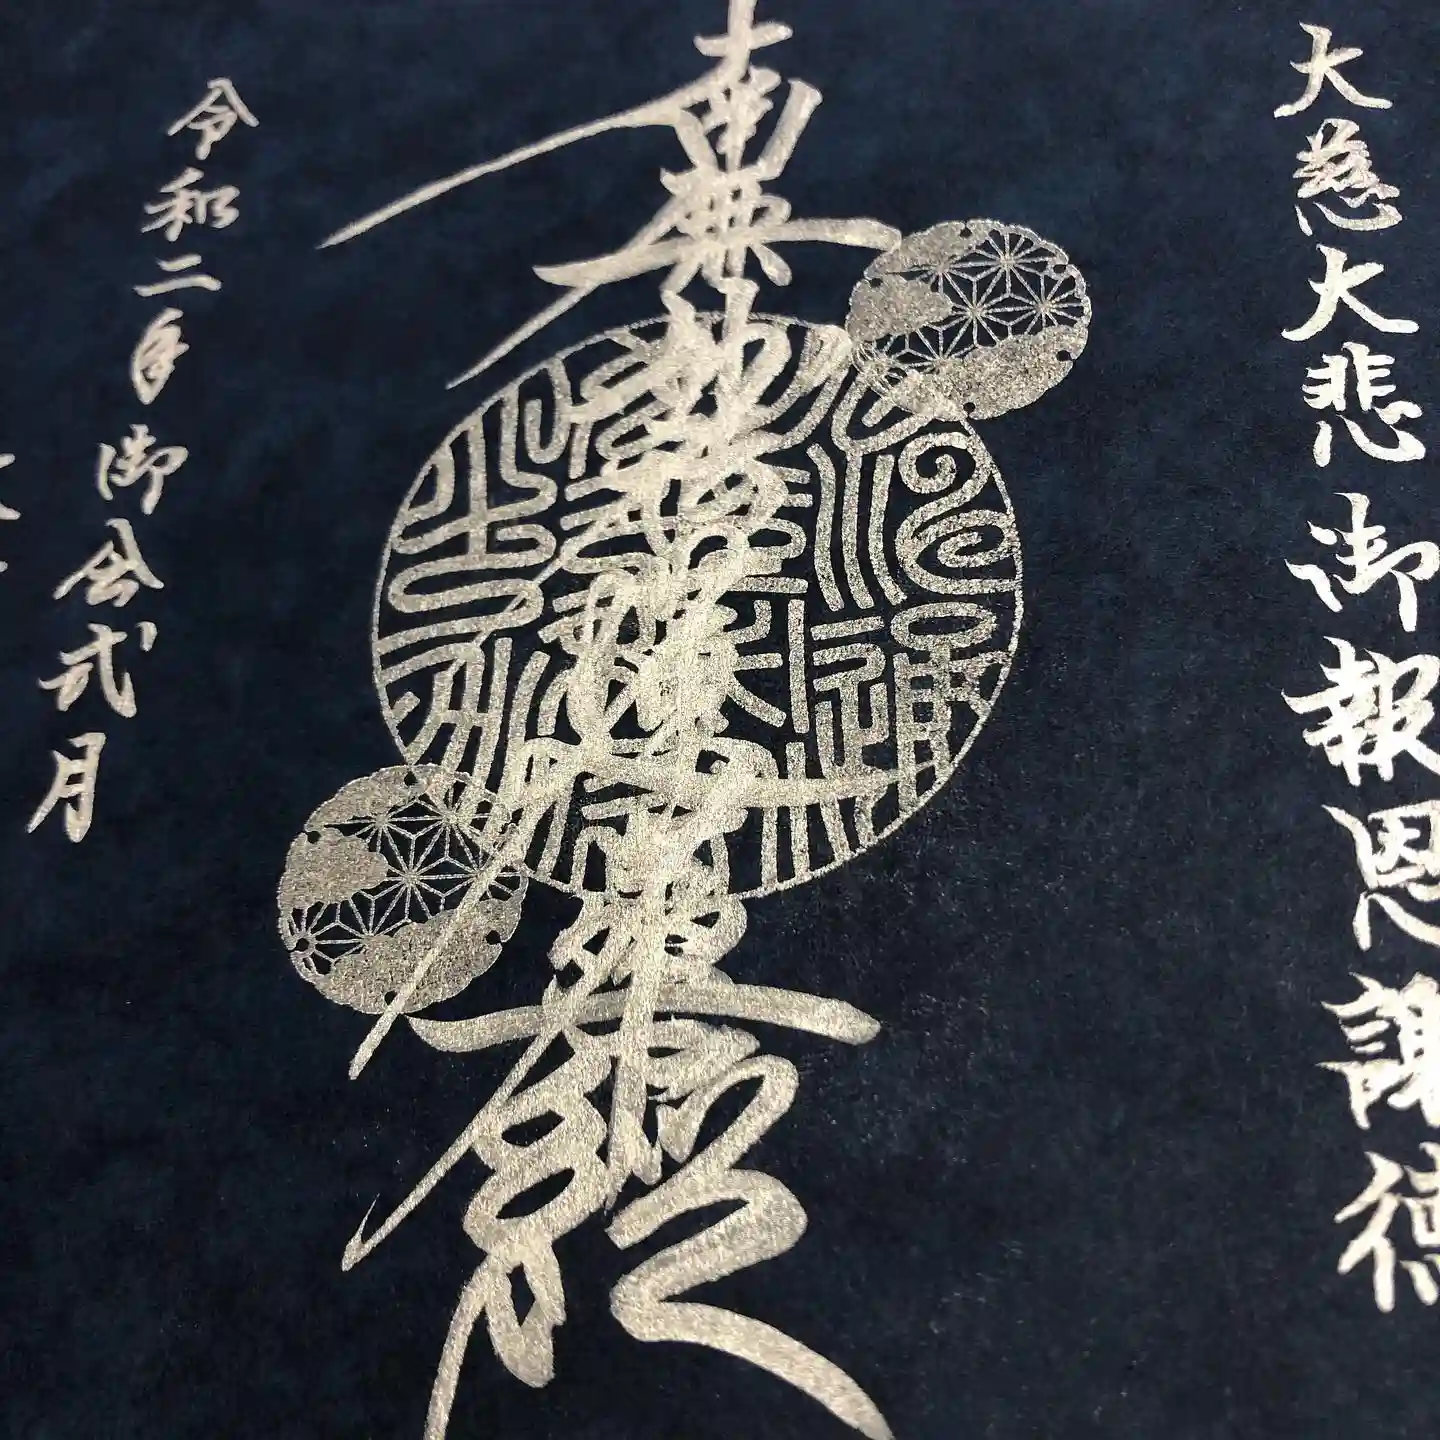 大慈大悲御報恩謝徳
南無妙法蓮華経
令和二年御会式月